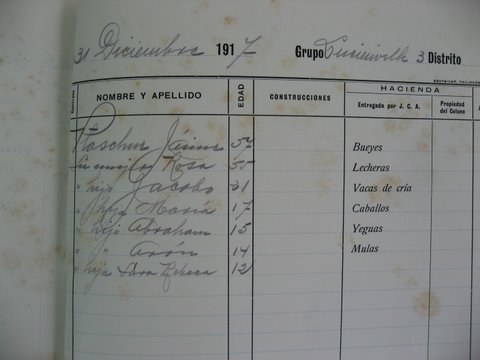 31 Diciembre 1917 Grupo 3 Distrito
NOMBRE Y APELLIDO EDAD CONSTRUCCIONES HACIENDA
Entregada por J. C. A. Propiedad del Colono
Jaime 57 Bueyes
Su Rosa 55 Lecheras
" hijo Jacobo 31 Vacas de cría
" hija María 17 Caballos
" hijo Abraham 15 Yeguas
" " Arón 14 Mulas
" hija Sara Rebeca 12